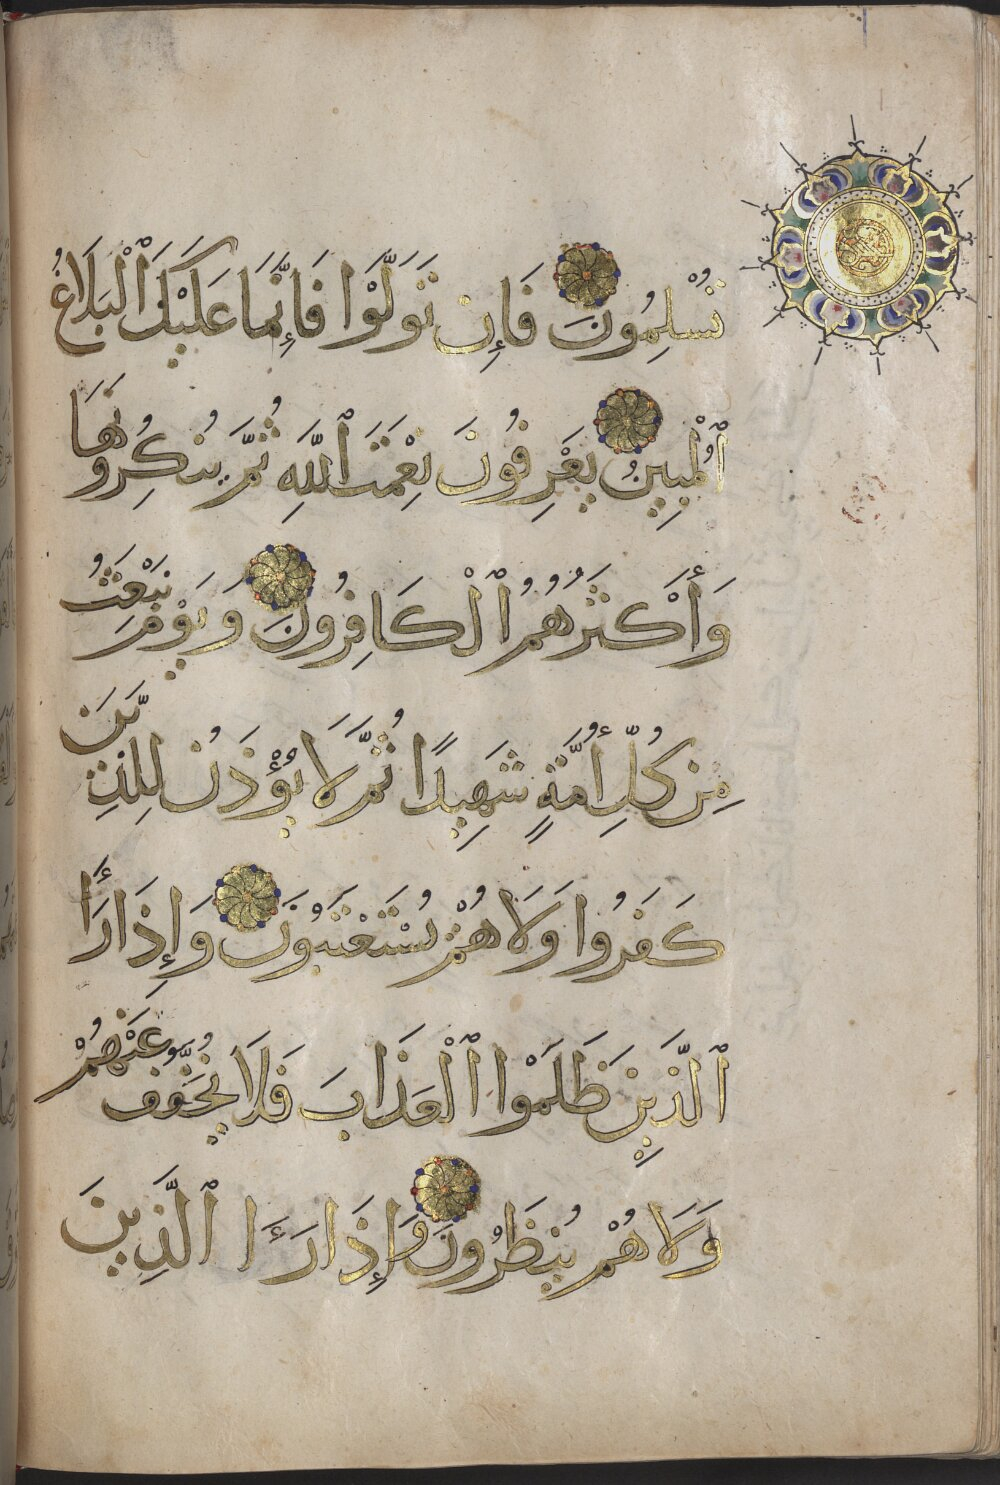 تُسْلِمُونَ فَإِن تَوَلَّوْا فَإِنَّمَا عَلَيْكَ ٱلْبَلَاغُ
ٱلْمُبِينُ يَعْرِفُونَ نِعْمَتَ ٱللَّهِ ثُمَّ يُنكِرُونَهَا
وَأَكْثَرُهُمُ ٱلْكَافِرُونَ وَيَوْمَ نَبْعَثُ
مِن كُلِّ أُمَّةٍ شَهِيدًا ثُمَّ لَا يُؤْذَنُ لِلَّذِينَ
كَفَرُوا وَلَا هُمْ يُسْتَعْتَبُونَ وَإِذَا رَأَا
ٱلَّذِينَ ظَلَمُوا ٱلْعَذَابَ فَلَا يُخَفَّفُ عَنْهُمْ
وَلَا هُمْ يُنظَرُونَ وَإِذَا رَءَا ٱلَّذِينَ